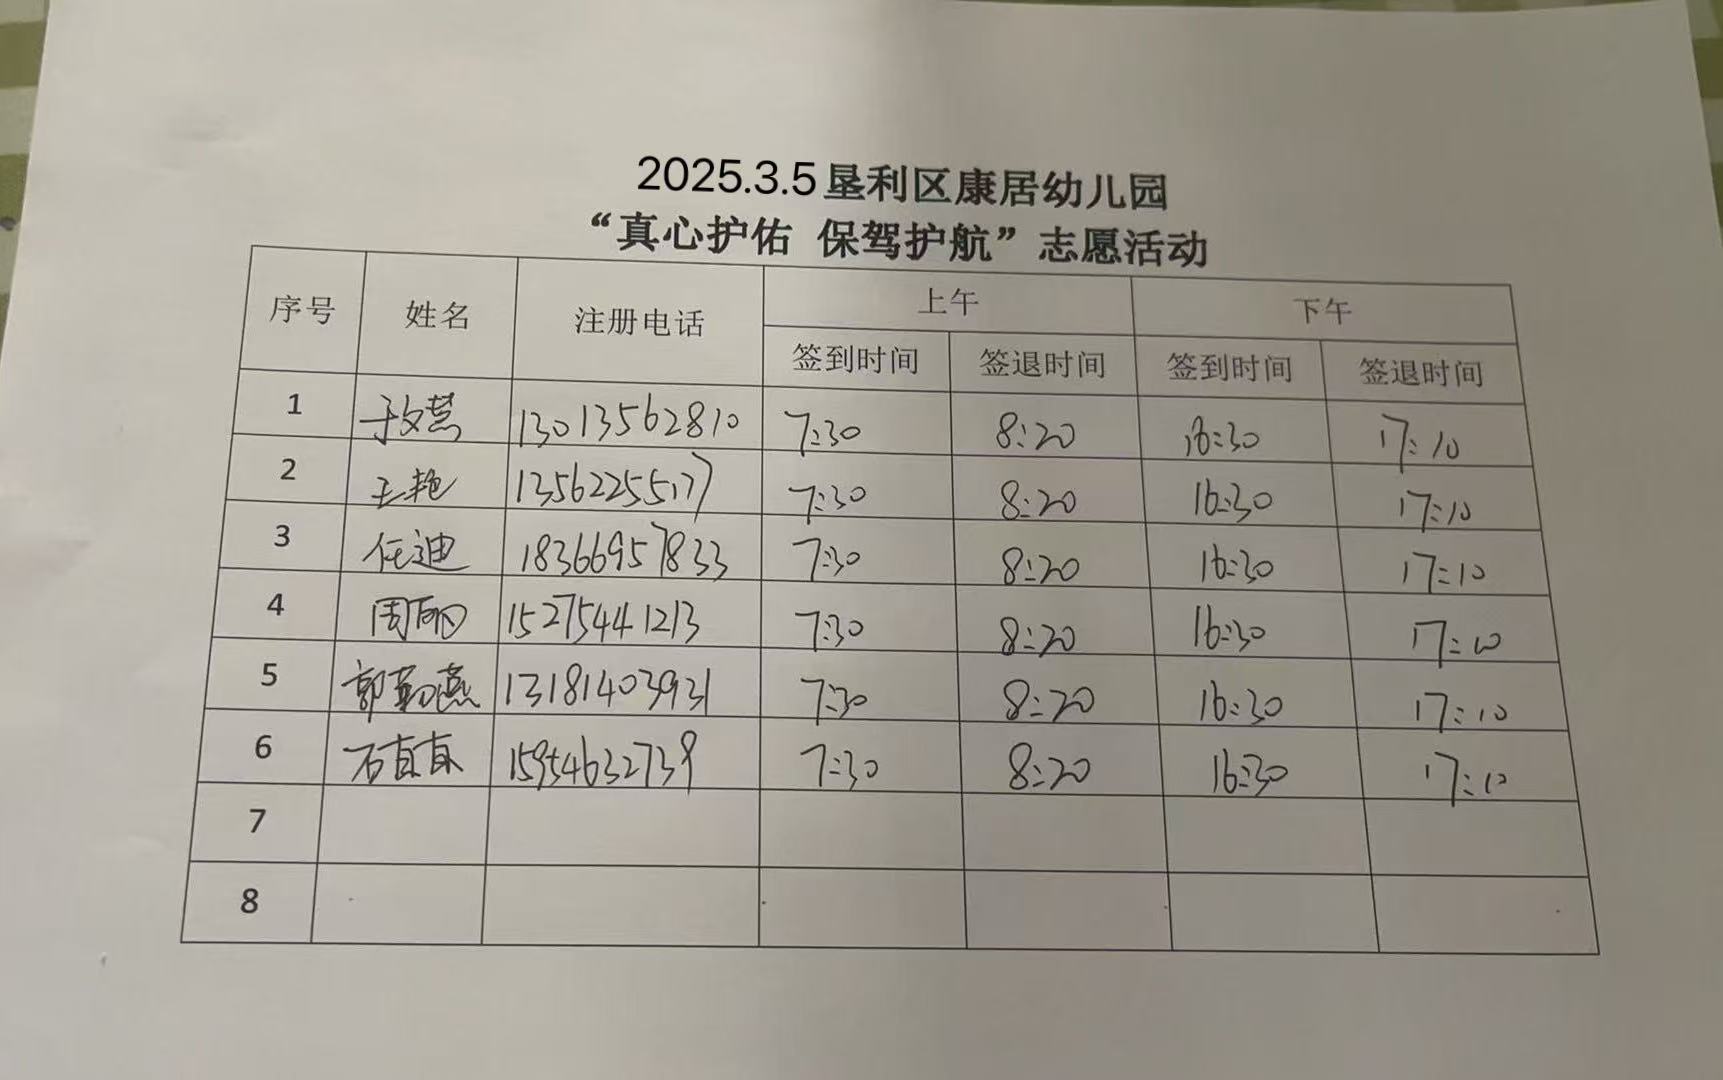 2025.3.5垦利区康居幼儿园
“真心护佑 保驾护航”志愿活动
序号 姓名 注册电话 上午 下午
签到时间 签退时间 签到时间 签退时间
1 于文慧 13013562810 7:30 8:20 16:30 17:10
2 王艳 13562255177 7:30 8:20 16:30 17:10
3 任迪 18366957833 7:30 8:20 16:30 17:10
4 周丽 15275441213 7:30 8:20 16:30 17:10
5 郭勤燕 13181403931 7:30 8:20 16:30 17:10
6 石真真 15954632739 7:30 8:20 16:30 17:10
7
8